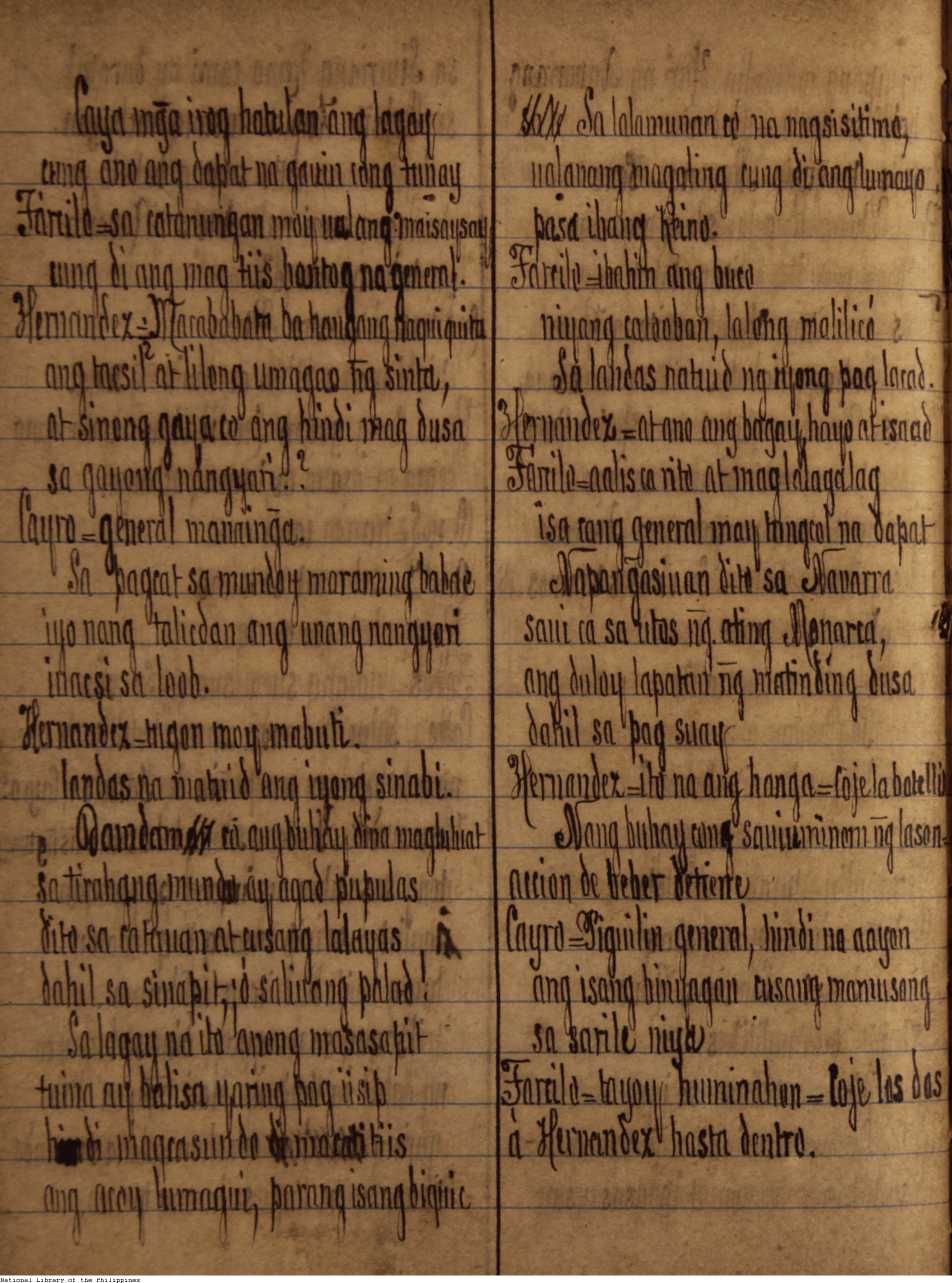 Caya mg̃a irog hatulan ang lagay
cung ano ang dapat na gauin cong tunay
Farcilo=sa catanungan moy ualang maisaysay
cung di ang mag tiis bantog na general.
Hernandez=Macababata ba haugang naquiquita
ang tacsil at lilong umagao ñg sinta,
at sinong gaya co ang hindi mag dusa
sa gayong nangyari??
Cayro=general manainga.
Sa pagcat sa mundoy maraming babae
iyo nang talicdan ang unang nangyari
inacsi sa loob.
Hernandez=tugon moy mabuti.
landas na matuid ang iyong sinabi.
Damdam co ang buhay dina magtutuat
sa tirahang mundo ay agad pupulas
dito sa catauan at cusang lalayas
dahil sa sinapit, ó saliuang palad!
Sa lagay na ito anong masasapit
tuina ay balisa yaring pag iisip
hindi magcasundo di macatitiis
ang acoy lumagui, parang isang biguic
Sa lalamunan co na nagsisitimo,
ualanang magaling cung di ang lumayo
pasa ibang Reino.
Farcilo=ibahin ang buco
niyang calooban, lalong malilicó
Sa landas natuid ng iyong pag lacad.
Hernandez=at ano ang bagay, hayo at isaad
Farcilo=aalis ca rito at maglalagalag
isa cang general may tungcol na dapat
Napangasiuan dito sa Navarra
saui ca sa utos ñg ating Monarca,
ang duloy lapatan ñg matinding dusa
dahil sa pag suay
Hernandez=ito na ang hanga=Coje la botella
Nang buhay cong saui uminom ñg lason=
accion de beber detiene
Cayro=Piguilin general, hindi na aayon
ang isang binyagan cusang mamusong
sa sarile niya
Farcilo=tayoy huminahon=Coje los dos
à Hernandez hasta dentro.
National Library of the Philippines